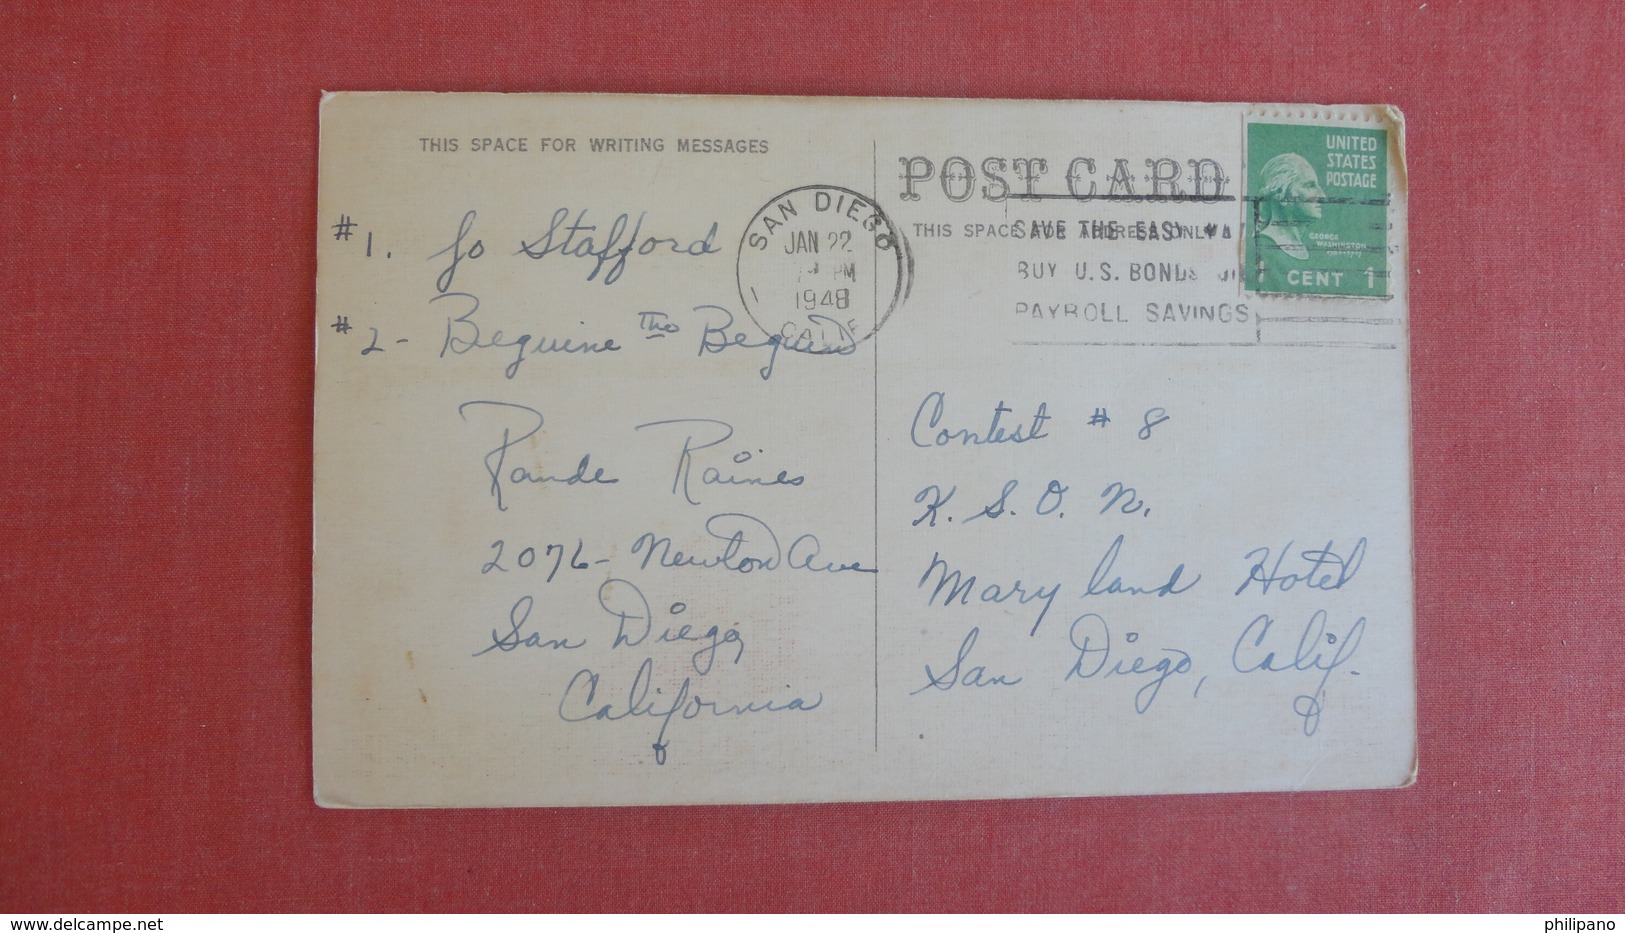 THIS SPACE FOR WRITING MESSAGES
#1. Jo Stafford
#2 - Beguine The Beguine
Rande Raines
2076 - Newton Ave
San Diego,
California
SAN DIEGO
JAN 22
PM
1948
CALIF
POST CARD
THIS SPACE FOR ADDRESS ONLY
SAVE THE EASY
BUY U.S. BONDS
PAYROLL SAVINGS
UNITED
STATES
POSTAGE
GEORGE
WASHINGTON
1 CENT 1
Contest # 8
K. S. O. N.
Mary land Hotel
San Diego, Calif.
www.delcampe.net
philipano